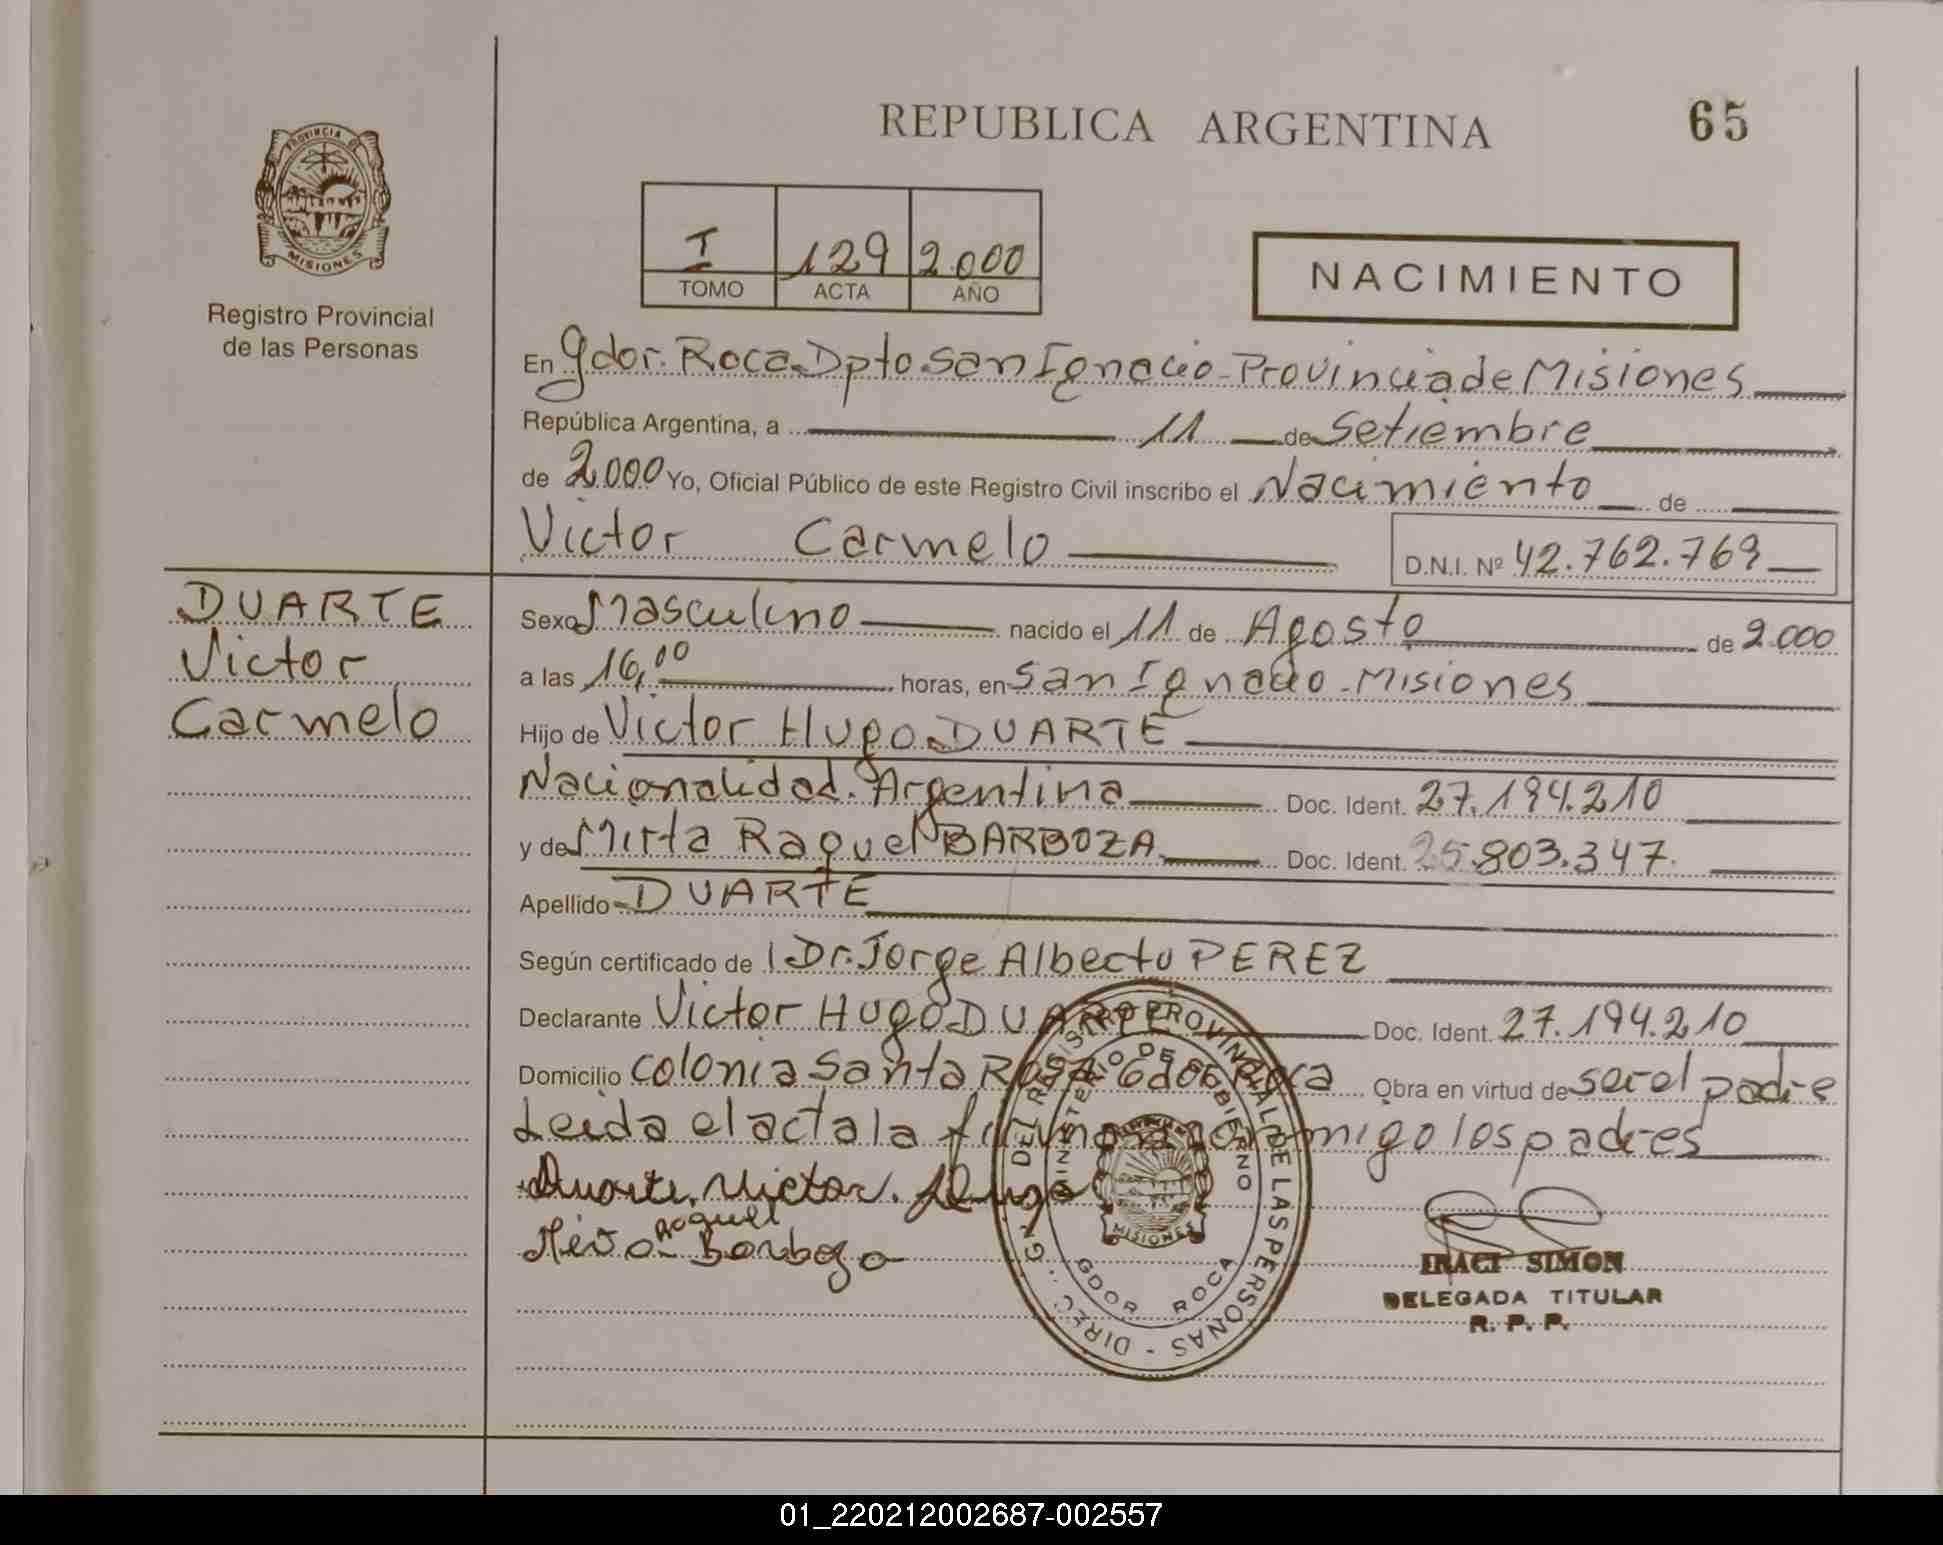 REPUBLICA ARGENTINA
65
PROVINCIA DE
MISIONES
Registro Provincial
de las Personas
I 129 2.000
TOMO ACTA AÑO
NACIMIENTO
En Gdor. Roca Dpto San Ignacio - Provincia de Misiones
República Argentina, a 11 de Setiembre
de 2.000 Yo, Oficial Público de este Registro Civil inscribo el Nacimiento de
Victor Carmelo
D.N.I. Nº 42.762.769
DUARTE
Victor
Carmelo
Sexo Masculino nacido el 11 de Agosto de 2.000
a las 16,00 horas, en San Ignacio - Misiones
Hijo de Victor Hugo DUARTE
Nacionalidad. Argentina Doc. Ident. 27.194.210
y de Mirta Raquel BARBOZA Doc. Ident. 25.803.347.
Apellido DUARTE
Según certificado de Dr. Jorge Alberto PEREZ
Declarante Victor Hugo DUARTE Doc. Ident. 27.194.210
Domicilio Colonia Santa Rosa Gdor Roca Obra en virtud de ser el padre
Leida el acta la firman conmigo los padres
Duarte. Victor. Hugo
Raquel
Barboza
DIREC. GRAL. DEL REGISTRO PROVINCIAL DE LAS PERSONAS
MINISTERIO DE GOBIERNO
MISIONES
GDOR. ROCA
IRACI SIMON
DELEGADA TITULAR
R. P. P.
01_220212002687-002557